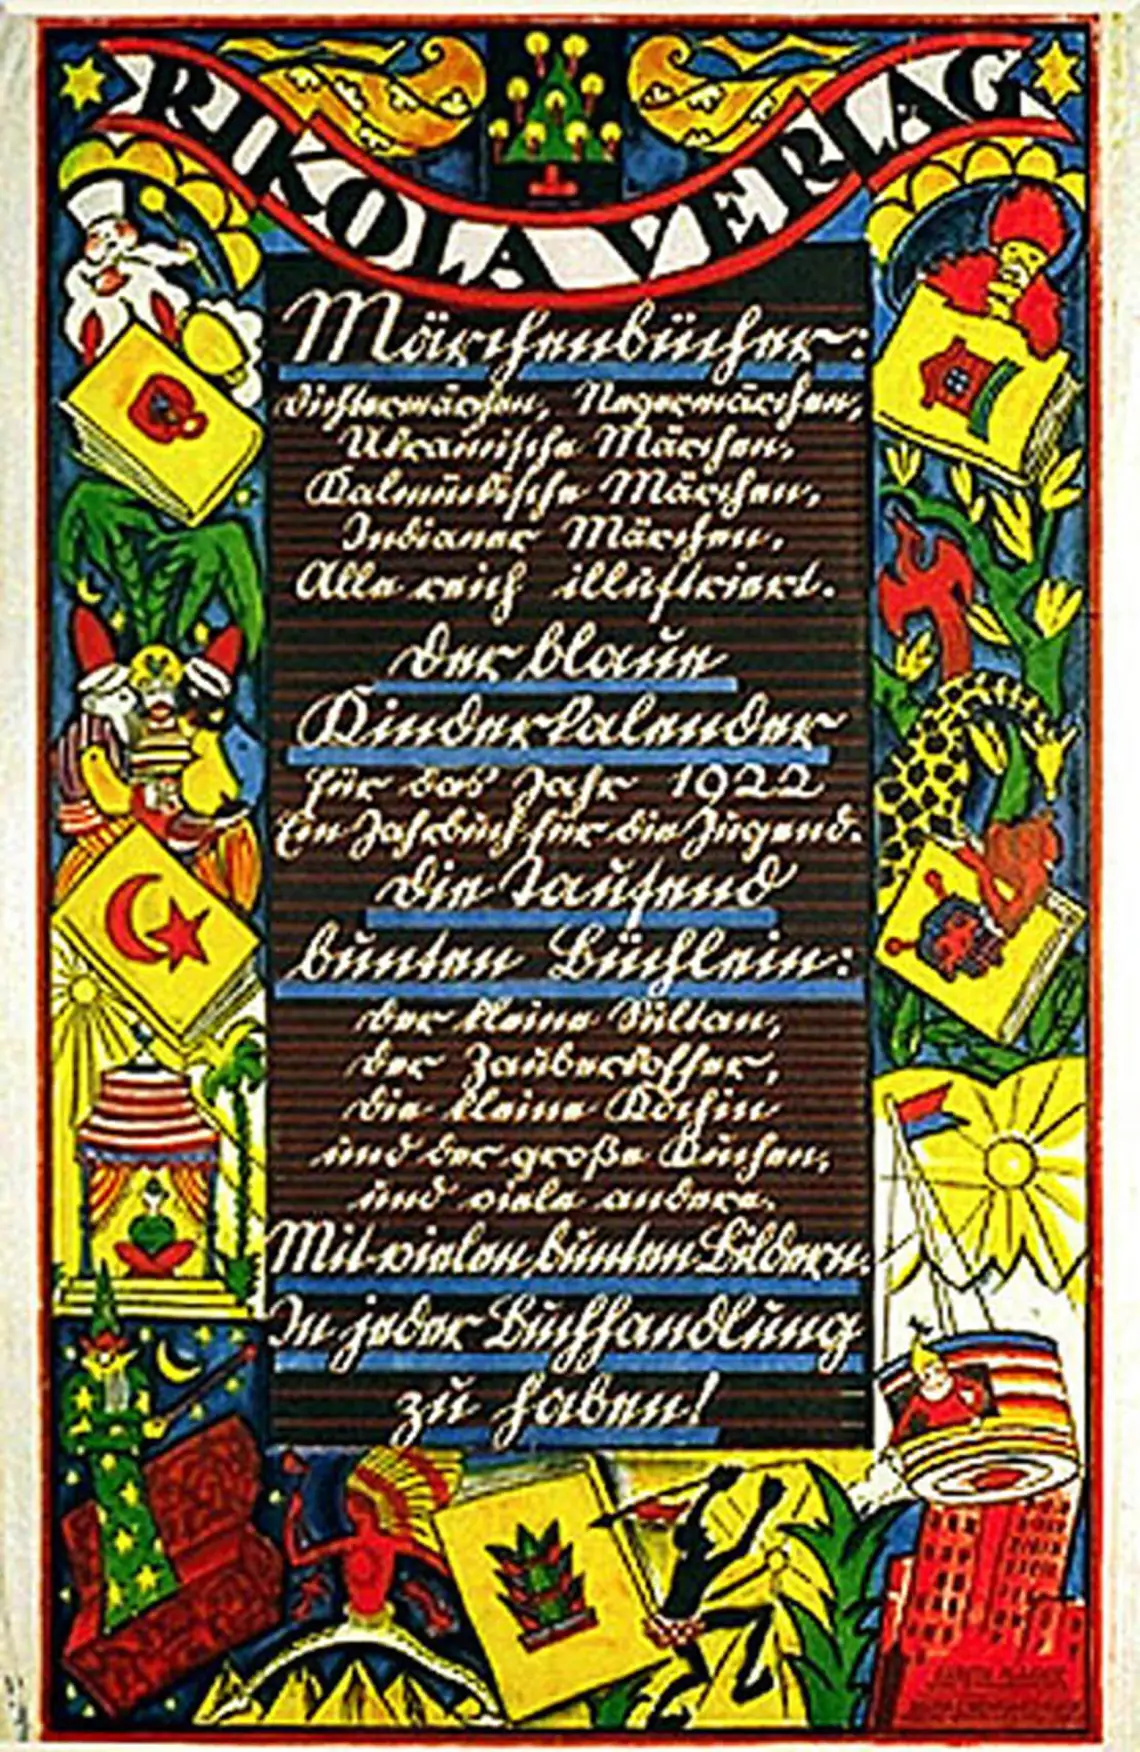 RIKOLA VERLAG
Märchenbücher:
Dichtermärchen, Negermärchen,
Ukrainische Märchen,
Kalmückische Märchen,
Indianer Märchen,
Alle reich illustriert.
Der blaue
Kinderkalender
für das Jahr 1922
Ein Jahrbuch für die Jugend.
Die Tausend
bunten Büchlein:
Der kleine Sultan,
Der Zauberkoffer,
Die kleine Köchin
und der große Kuchen,
und viele andere.
Mit vielen bunten Bildern.
In jeder Buchhandlung
zu haben!